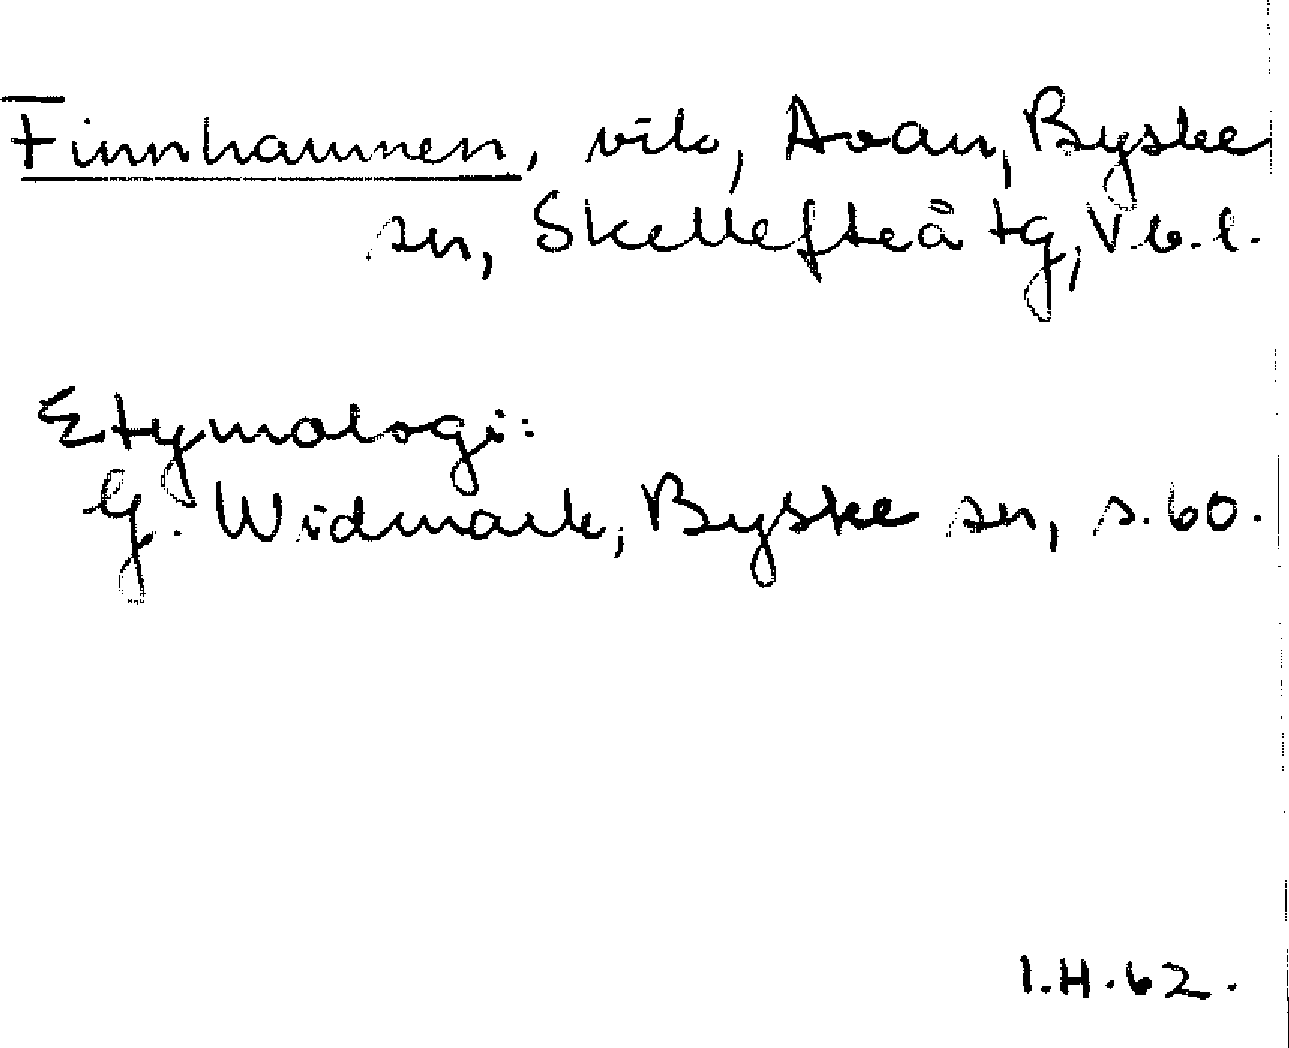 Finnhamnen, vik, Avan, Byske
sn, Skellefteå tg, Vb.l.
Etymologi:
G. Widmark, Byske sn, s. 60.
I.H.62.